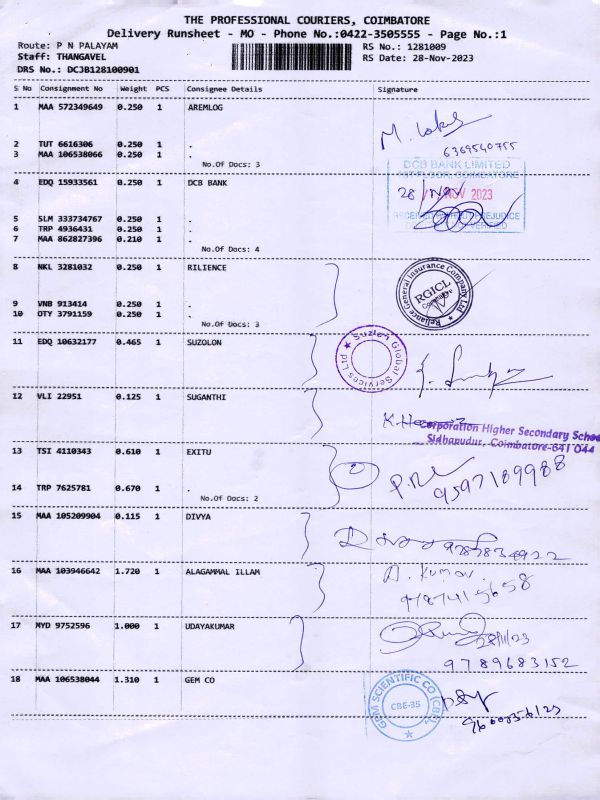 THE PROFESSIONAL COURIERS, COIMBATORE
Delivery Runsheet - MO - Phone No.:0422-3505555 - Page No.:1
Route: P N PALAYAM RS No.: 1281009
Staff: THANGAVEL RS Date: 28-Nov-2023
DRS No.: DCJB128100901
S No Consignment No Weight PCS Consignee Details Signature
1 MAA 572349649 0.250 1 AREMLOG
M.
2 TUT 6616306 0.250 1 .
6369540755
3 MAA 106538066 0.250 1 .
No.Of Docs: 3
DCB BANK LIMITED
1ST FLOOR, COIMBATORE
4 EDQ 15933561 0.250 1 DCB BANK
28 NOV 2023
5 SLM 333734767 0.250 1 .
6 TRP 4936431 0.250 1 .
7 MAA 862827396 0.210 1 .
No.Of Docs: 4
8 NKL 3281032 0.250 1 RILIENCE
Reliance General Insurance Company Ltd
RGICL
Coimbatore
9 VNB 913414 0.250 1 .
10 OTY 3791159 0.250 1 .
No.Of Docs: 3
11 EDQ 10632177 0.465 1 SUZOLON
Suzlon Global Services Ltd
12 VLI 22951 0.125 1 SUGANTHI
Corporation Higher Secondary School
Sidhapudur, Coimbatore-641 044
13 TSI 4110343 0.610 1 EXITU
14 TRP 7625781 0.670 1 .
9597189988
No.Of Docs: 2
15 MAA 105209904 0.115 1 DIVYA
16 MAA 103946642 1.720 1 ALAGAMMAL ILLAM
A. Kumar.
9787415658
17 MYD 9752596 1.000 1 UDAYAKUMAR
28/11/23
9789683152
18 MAA 106538044 1.310 1 GEM CO
GEM SCIENTIFIC CO (CBE)
CBE-35